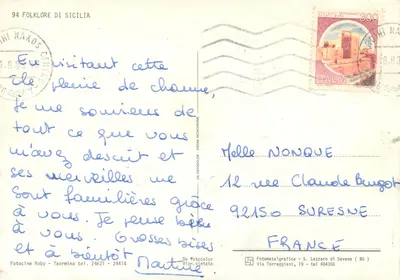 94 FOLKLORE DI SICILIA
NI NAXOS
En visitant cette
île pleine de charme,
je me souviens de
tout ce que vous
m'avez décrit et
ses merveilles me
sont familières grâce
à vous. Je pense bien
à vous. Grosses bises
et à bientôt Martine
Melle NONQUE
12 rue Claude
92150 SURESNE
FRANCE
Fotocine Roby - Taormina tel. 24621 - 24414
Da Fotocolor
Fotometalgrafica - S. Lazzaro di Savena ( BO )
Via Torreggiani, 19 - tel.